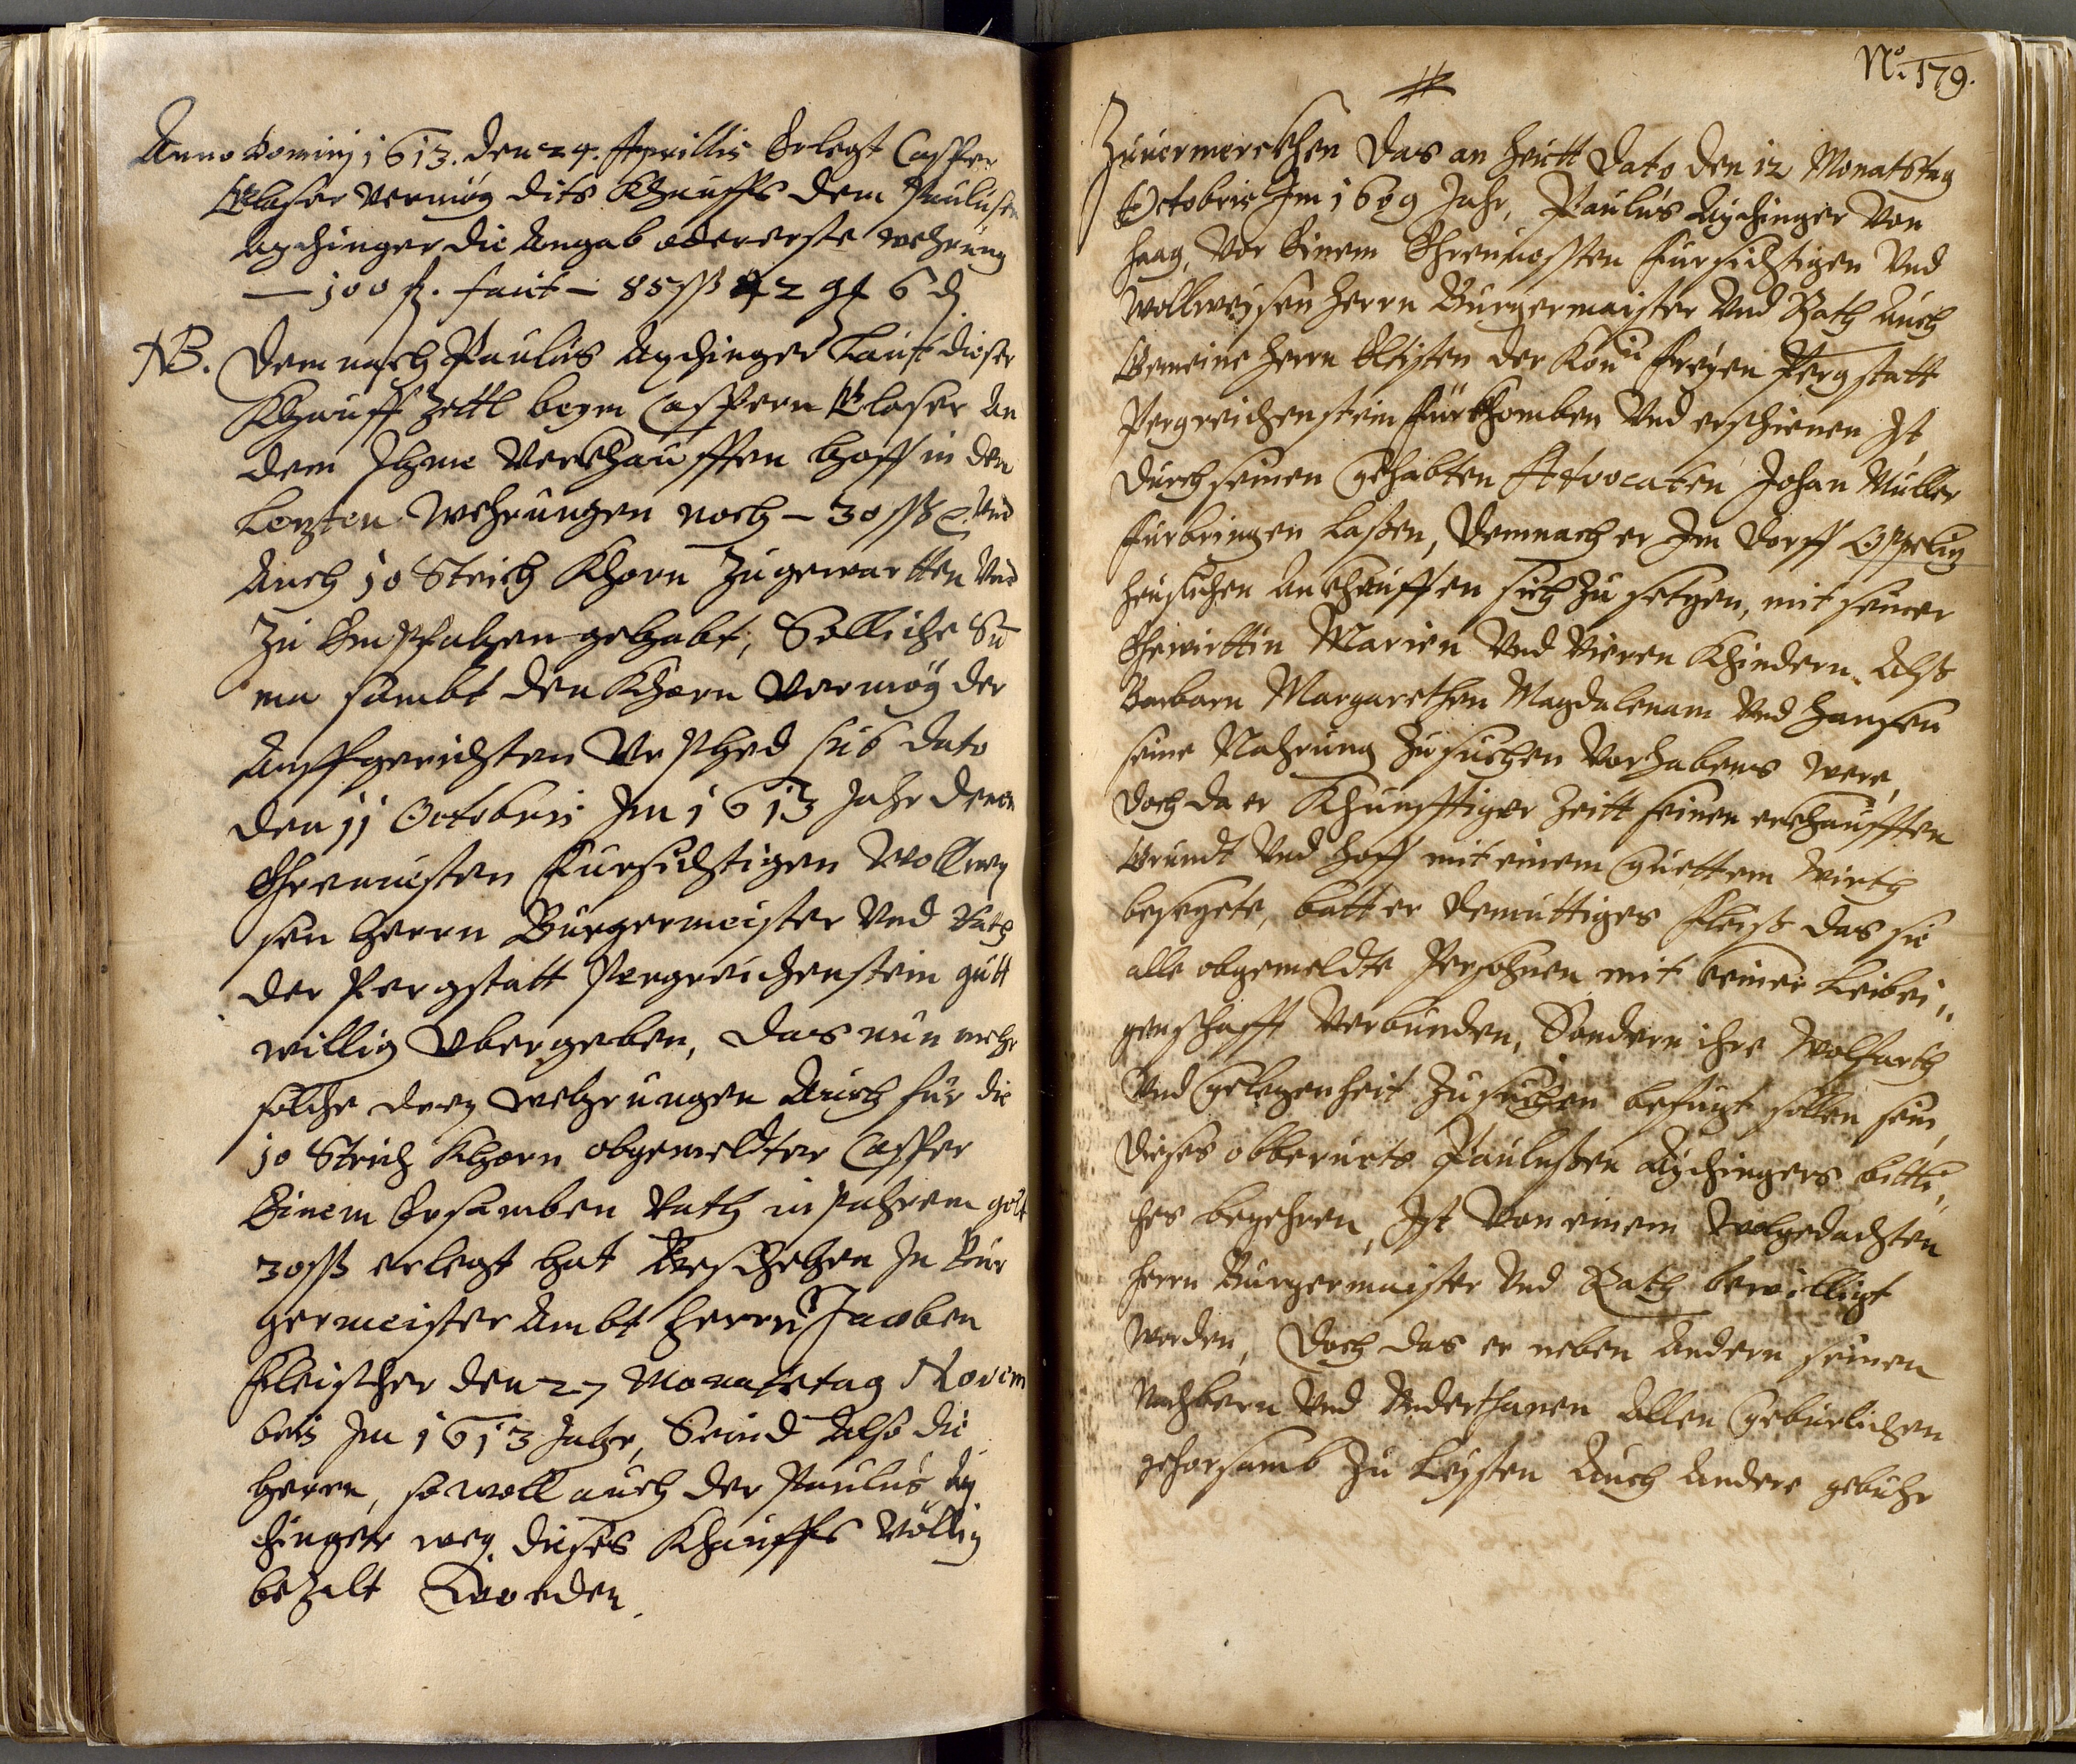 Anno Dominj 1613. den 24. Aprillis Erlegt Casper
Glaser vermüg dits Khauffs dem Paulusen
Aychinger die Angab oder erste wehrung
— 100 fl. facit — 85 ßß 42 gl 6 d
NB. Demnach Paulus Aychinger Laut dieser
Khauff Zettl beym Caspern Glaser An
dem Ihme verkhaufften hoff in den
Lezten Wehrungen noch — 30 ßß Und
Auch 10 Strich Khorn Zugewartten Und
Zu Empfahen gehabt, Solliche Su
ma sambt den Khorn vermög der
Auffgerichten Urphed sub dato
den 11 Octobris Im 1613 Jahr denen
Ehrnuesten Fursichtigen Wollwey
sen herrn Burgermeister Und Rath
der Pergstatt Pergreichenstein gutt
willig Übergeben, das nun mehr
solche drey wehrungen Auch für die
10 Strich Khorn obgemeldter Casper
Einem Ersamben Rath in pahrem gelt
30 ßß erlegt hat Geschehen In Bur
germeister Ambt herrn Jacoben
Fleischer den 27 Monatstag Novem
bris Im 1613 Jahr, Seind Also die
herrn, so woll auch der Paulus Ay
chinger weg. dieses Khauffs Völlig
bezalt Worden.
No. 179.
Zuuermerckhen Das an heutt Dato den 12 Monatstag
Octobris Im 1609 Jahr, Paulus Aychinger Von
haag, Vor Einem Ehrnuossten Fursichtigen Und
Wollweysen herrn Burgermaister Und Rath Auch
Gemeine herrn Eltisten der Kön. Freyen Pergstatt
Pergreichenstein fürkhomben Und erschienen Ist
Durch seinen gehabten Advocaten Johan Müller
Furbringen Laßen, Demnach er Im Dorff
heuslichen Ankhauffen sich Zu setzen, mit seiner
Ehewirttin Marien Und Vieren Khindern Alß
Barbarn Margarethen Magdalenam Und Hansen
seine Nahrung Zusuchen Vorhabens were,
Doch da er Khunfftiger Zeitt seinen erkhaufften
Grundt Und hoff mit einem guettem Wirth
besezete, batt er Demuttiges Fleiß das sie
alle obgemeldte Persohnen mit keiner Leibei„
genschafft Verbunden, Sondern ihre Wolfarth
Und gelegenheit Zu suchen befugt sollen sein,
Dieses obberürts Paulußen Aychingers bittli„
ches begehren, Ist Von einem Wolgedachten
herrn Burgermaister Und Rath bewilligt
worden, Doch das er neben Andern seinen
Nachbern Und Underthanen Allen gebürlichen
gehorsamb Zu Leysten Auch Andere gebühr